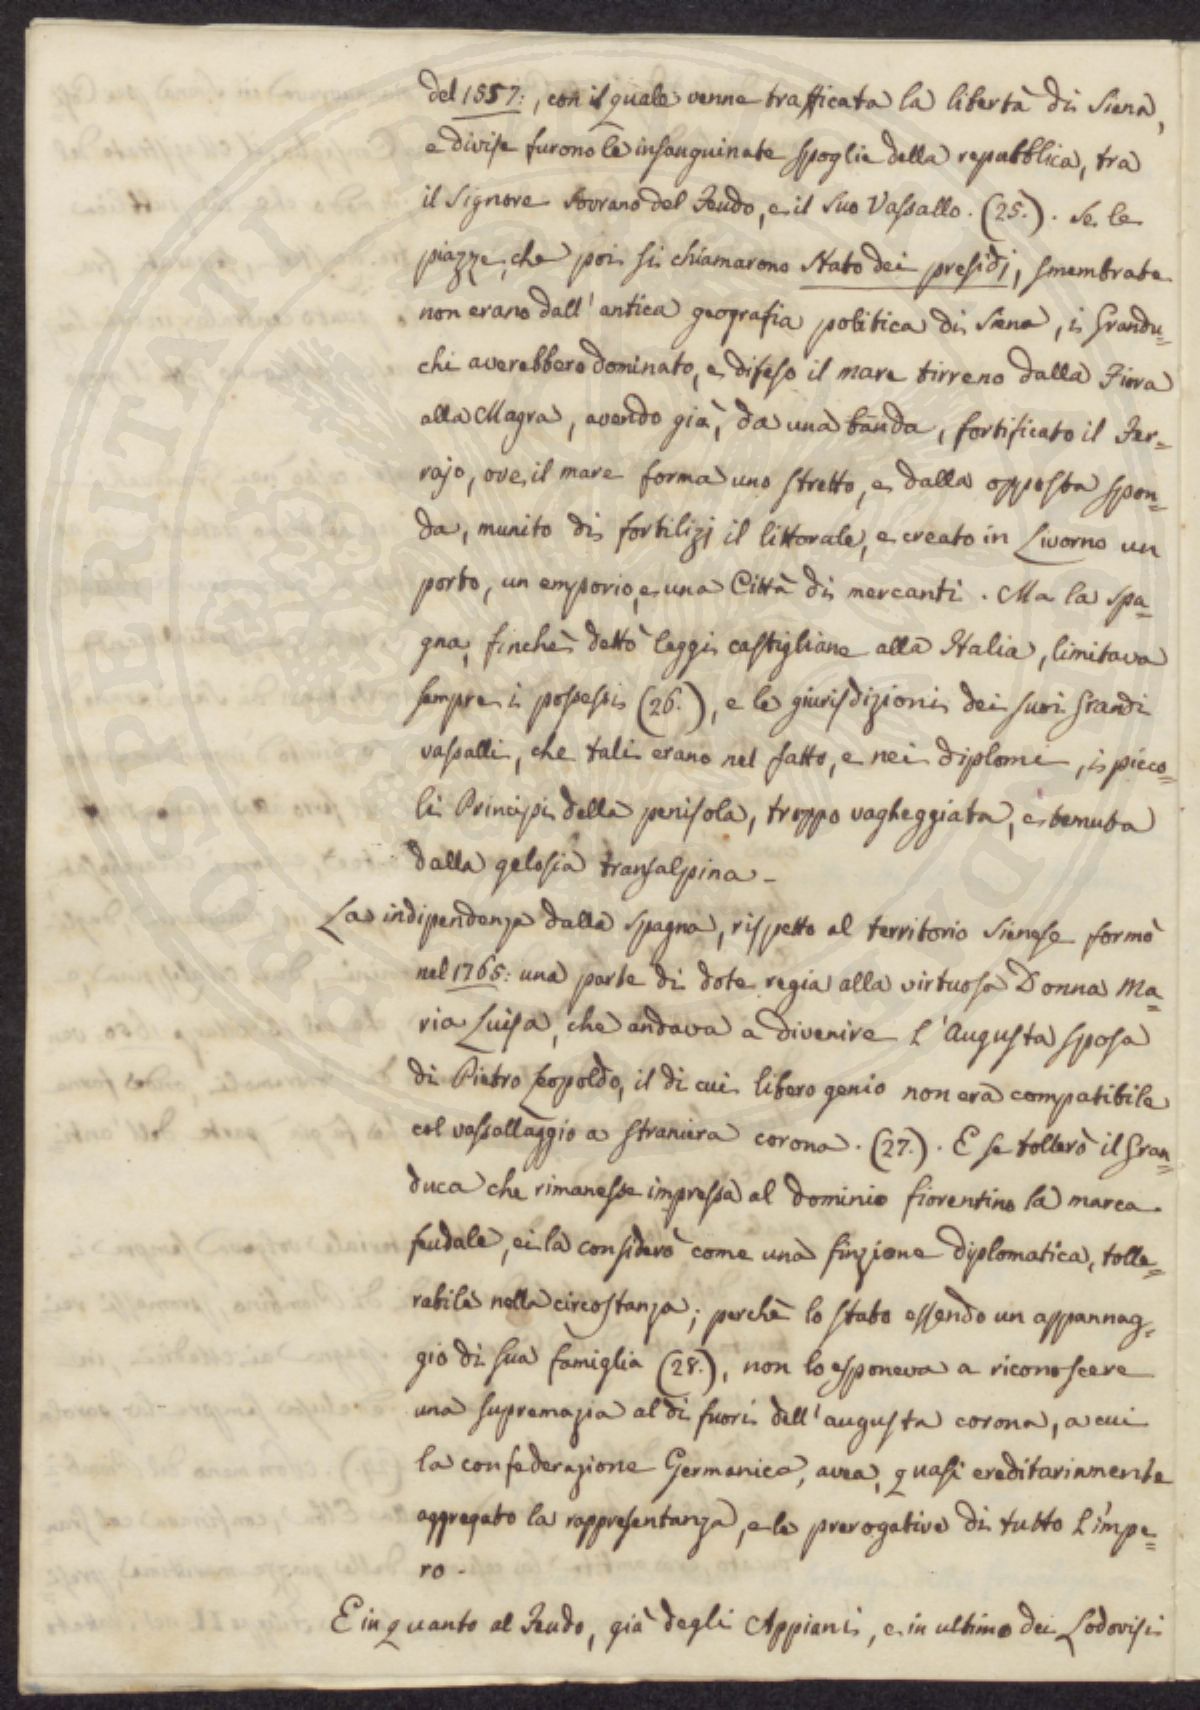 del 1557:, con il quale venne trafficata la libertà di Siena,
e divise furono le insanguinate spoglie della repubblica, tra
il Signore Sovrano del Feudo, e il suo Vassallo. (25.). Se le
piazze, che poi si chiamarono Stato dei presidj, smembrate
non erano dall' antica geografia politica di Siena, i Grandu=
chi averebbero dominato, e difeso il mare tirreno dalla Fiora
alla Magra, avendo già, da una banda, fortificato il Fer=
rajo, ove il mare forma uno stretto, e dalla opposta spon=
da, munito di fortilizj il littorale, e creato in Livorno un
porto, un emporio, e una Città di mercanti. Ma la Spa=
gna, finchè dettò leggi castigliane alla Italia, limitava
sempre i possessi (26.), e le giurisdizioni dei suoi Grandi
vassalli, che tali erano nel fatto, e nei diplomi, i picco=
li Principi della penisola, troppo vagheggiata, e temuta
dalla gelosia transalpina -
La indipendenza dalla Spagna, rispetto al territorio Sienese formò
nel 1765: una parte di dote regia alla virtuosa Donna Ma=
ria Luisa, che andava a divenire l' Augusta sposa
di Pietro Leopoldo, il di cui libero genio non era compatibile
col vassallaggio a straniera corona. (27.). E se tollerò il Gran=
duca che rimanesse impressa al dominio fiorentino la marca
feudale, ei la considerò come una finzione diplomatica, tolle=
rabile nella circostanza; perchè lo stato essendo un appannag=
gio di sua famiglia (28.), non lo esponeva a riconoscere
una supremazia al di fuori dell' augusta corona, a cui
la confederazione Germanica, avea, quasi ereditariamente
aggregato la rappresentanza, e le prerogative di tutto l'impe=
ro.
E in quanto al Feudo, già degli Appiani, e in ultimo dei Lodovisi
PROSPERITATI